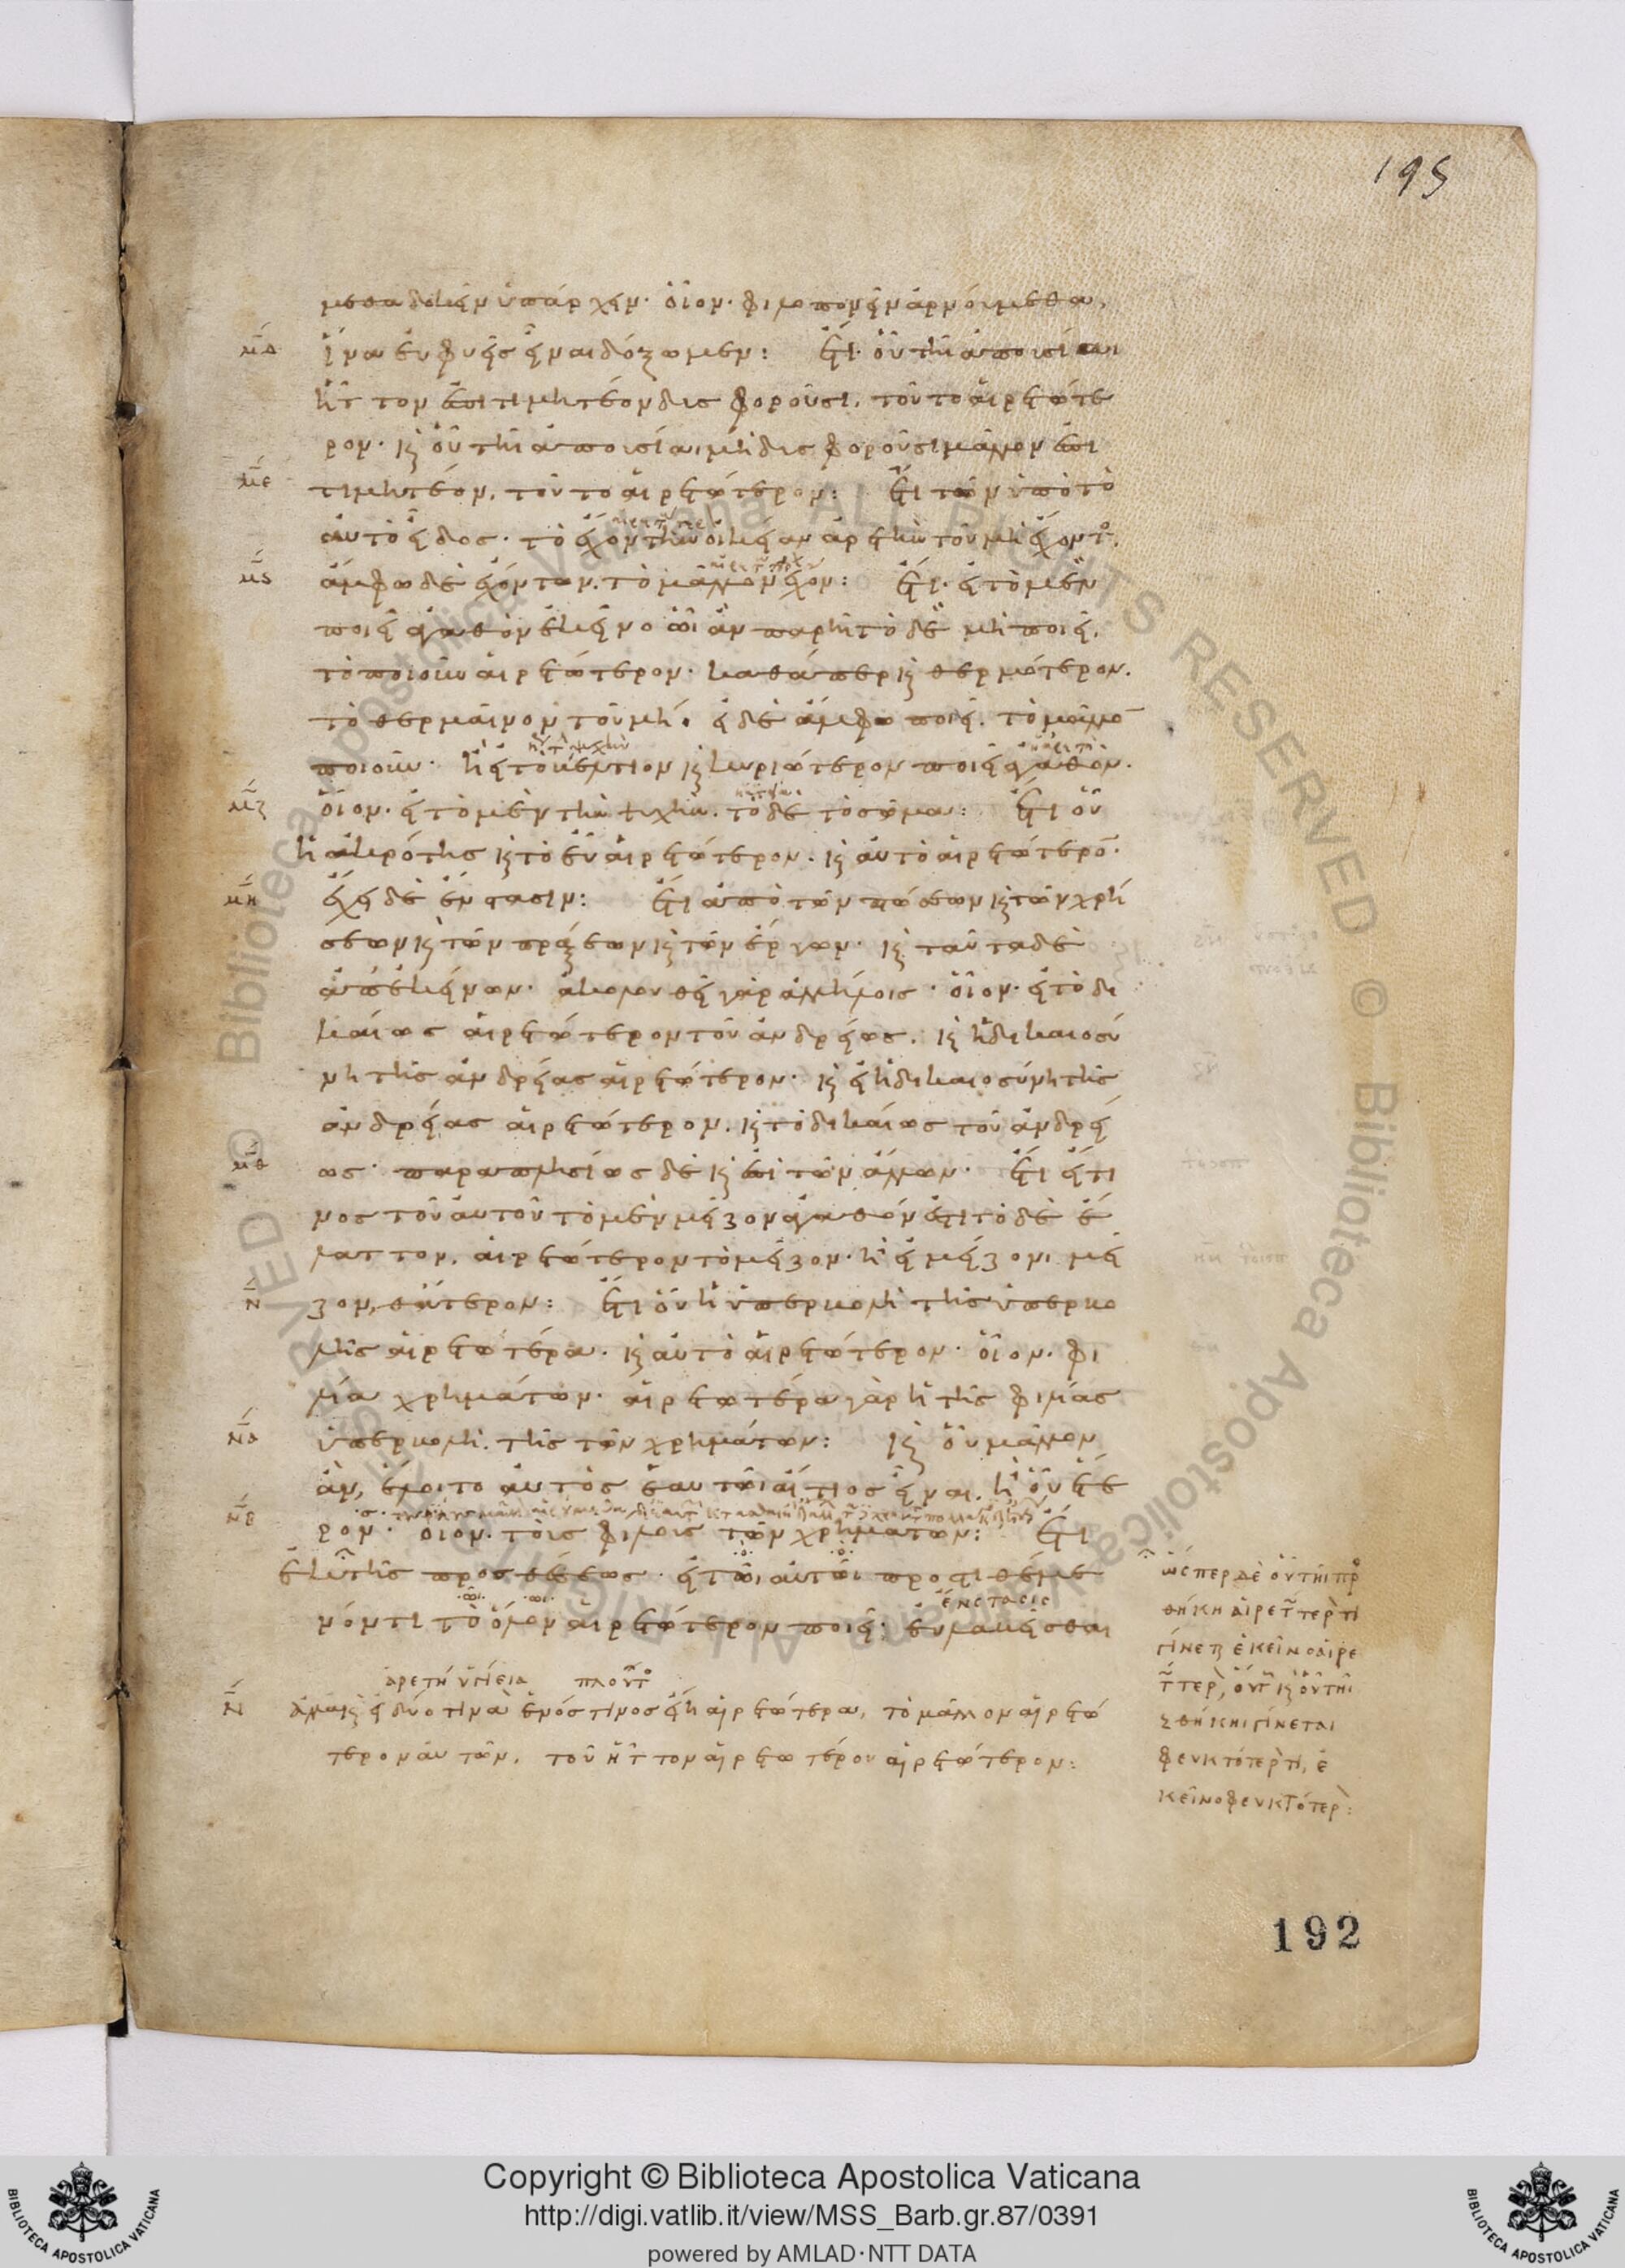 195
μεθα δοκεῖν ὑπάρχειν· οἷον· φιλοπονεῖν ἀρνούμεθα,
μ̅δ ἵνα εὐφυεῖς εἶναι δόξωμεν: ἔτι· οὗ τῆι ἀπουσίαι
ἧττον ἐπιτιμητέον δυσφοροῦσι, τοῦτο αἱρετώτε
ρον· καὶ οὗ τῆι ἀπουσίαι μὴ δυσφοροῦσι μᾶλλον ἐπι
μ̅ε τιμητέον, τοῦτο αἱρετώτερον: ἔτι τῶν ὑπὸ τὸ
αὐτὸ εἶδος· τὸ ἔχον τὴν οἰκείαν ἀρετὴν τοῦ μὴ ἔχοντος.
μ̅ς ἄμφω δὲ ἐχόντων. τὸ μᾶλλον ἔχον: ἔτι· εἰ τὸ μὲν
ποιεῖ ἀγαθὸν ἐκεῖνο ὧι ἂν παρῆι τὸ δὲ μὴ ποιεῖ,
τὸ ποιοῦν αἱρετώτερον· καθάπερ καὶ θερμότερον.
τὸ θερμαῖνον τοῦ μή· εἰ δὲ ἄμφω ποιεῖ. τὸ μᾶλλον
ποιοῦν· ἢ εἰ τὸ βέλτιον καὶ κυριώτερον ποιεῖ ἀγαθόν.
μ̅ζ οἷον· εἰ τὸ μὲν τὴν ψυχὴν. τὸ δὲ τὸ σῶμα: ἔτι οὗ
ἡ ἀκρότης καὶ τὸ εὖ αἱρετώτερον· καὶ αὐτὸ αἱρετώτερον·
μ̅η ἔχει δὲ ἔνστασιν: ἔτι ἀπὸ τῶν πτώσεων καὶ τῶν χρή
σεων καὶ τῶν πράξεων καὶ τῶν ἔργων· καὶ ταῦτα δὲ
ἀπ' ἐκείνων· ἀκολουθεῖ γὰρ ἀλλήλοις· οἷον· εἰ τὸ δι
καίως αἱρετώτερον τοῦ ἀνδρείως. καὶ ἡ δικαιοσύ
νη τῆς ἀνδρείας αἱρετώτερον· καὶ εἰ ἡ δικαιοσύνη τῆς
ἀνδρείας αἱρετώτερον. καὶ τὸ δικαίως τοῦ ἀνδρεί
μ̅θ ως· παραπλησίως δὲ καὶ ἐπὶ τῶν ἄλλων· ἔτι εἴ τι
νος τοῦ αὐτοῦ τὸ μὲν μεῖζον ἀγαθόν ἐστι τὸ δὲ ἔ
λαττον. αἱρετώτερον τὸ μεῖζον· ἢ εἰ μείζονι μεῖ
ν̅ ζον θάτερον: ἔτι οὗ ἡ ὑπερβολὴ τῆς ὑπερβο
λῆς αἱρετωτέρα· καὶ αὐτὸ αἱρετώτερον· οἷον· φι
λία χρημάτων· αἱρετωτέρα γὰρ ἡ τῆς φιλίας
ν̅α ὑπερβολὴ. τῆς τῶν χρημάτων: καὶ οὗ μᾶλλον
ἂν, ἕλοιτο αὐτὸς ἑαυτῶι αἴτιος εἶναι. ἢ οὗ ἕτε
ν̅β ρον· οἷον· τοὺς φίλους τῶν χρημάτων: ἔτι
ἐκ τῆς προσθέσεως· εἰ τῶι αὐτῶι προστιθέμε
νόν τι τὸ ὅλον αἱρετώτερον ποιεῖ: εὐλαβεῖσθαι
ἔνστασις
ἀρετή ὑγίεια πλοῦτος
ν̅ ἀλλὰ καὶ εἰ δύο τινὰ ἑνός τινος εἴη αἱρετώτερα, τὸ μᾶλλον αἱρετώ
τερον αὐτῶν, τοῦ ἧττον αἱρετωτέρου αἱρετώτερον:
ὥσπερ δὲ οὗ τῆι προσ
θήκηι αἱρετώτερόν τι
γίνεται ἐκεῖνο αἱρε
τώτερον, οὕτω καὶ οὗ τῆι προ
σθήκηι γίνεται
φευκτότερόν τι, ἐ
κεῖνο φευκτότερον:
192
Copyright © Biblioteca Apostolica Vaticana
http://digi.vatlib.it/view/MSS_Barb.gr.87/0391
powered by AMLAD·NTT DATA